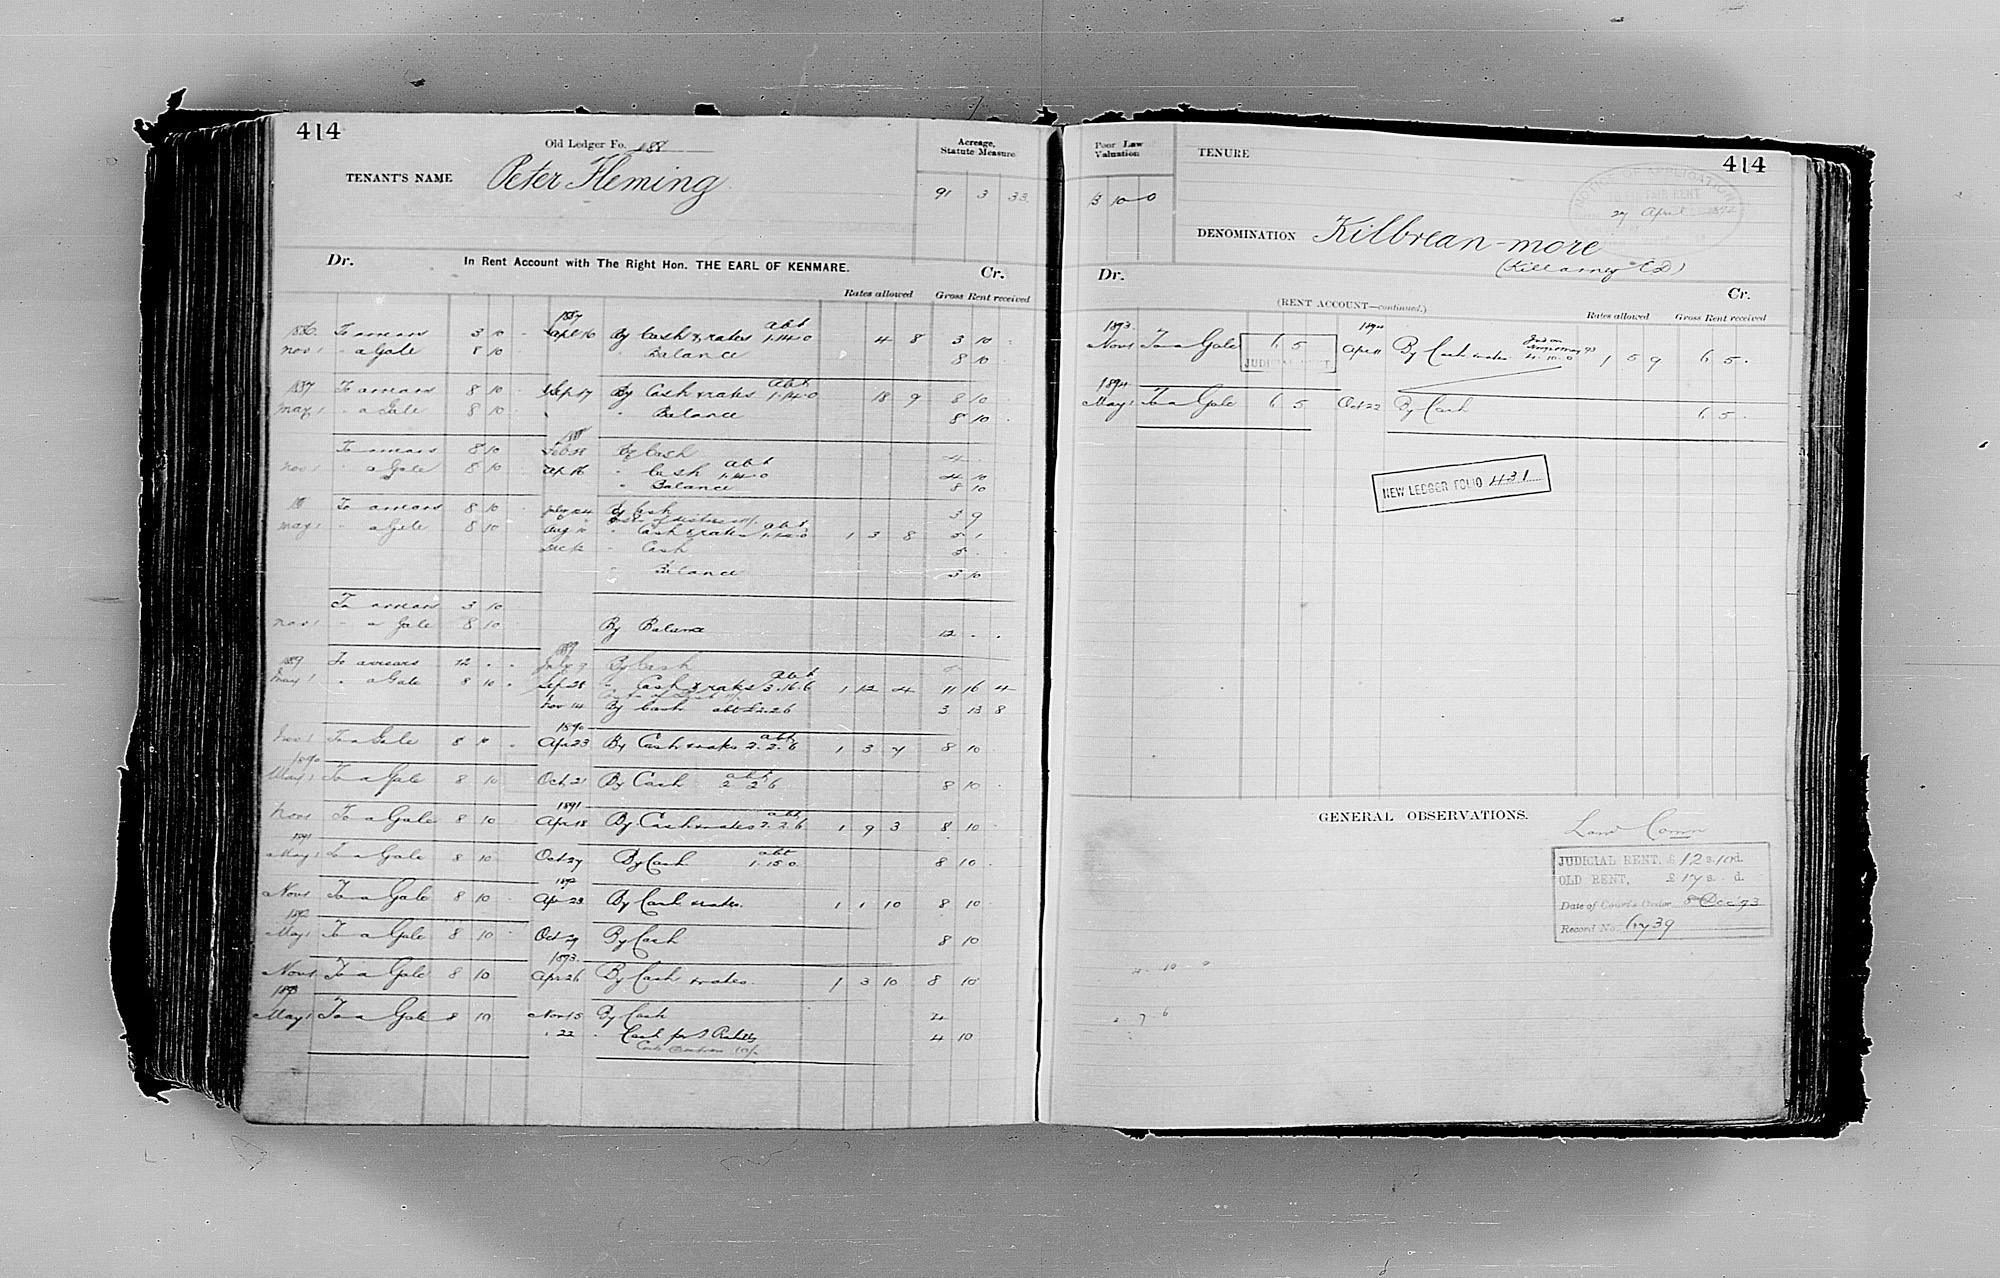 414
Old Ledger Fo. 188
TENANT'S NAME Peter Fleming
Acreage, Statute Measure
91 3 33
Dr. In Rent Account with The Right Hon. THE EARL OF KENMARE. Cr.
Rates allowed Gross Rent received
1887
1886 To arrears 3 10 - April 16 By Cash & rates abt 1.14.0 4 8 3 10
Nov 1 " a Gale 8 10 " Balance 8 10
1887 To arrears 8 10 Sep 17 By Cash & rates abt 1.14.0 18 9 8 10
May 1 " a Gale 8 10 " Balance 8 10
1888
To arrears 8 10 Feb 28 By Cash 4
Nov 1 " a Gale 8 10 Ap 16 " Cash abt 1.14.0 4 10
" Balance 8 10
To arrears 8 10 July 24 By Cash 3 9
May 1 " a Gale 8 10 Aug 10 " Cash & rates abt 1.14.0 1 3 8 5 1
Dec 12 " Cash 5
" Balance 3 10
To arrears 3 10
Nov 1 " a Gale 8 10 By Balance 12 . .
1889
1889 To arrears 12 . . July 9 By Cash 5
May 1 " a Gale 8 10 . Sep 28 " Cash & rates abt 3.16.6 1 12 4 11 16 4
Nov 14 By Cash abt £2.2.6 3 13 8
1890
Nov 1 To a Gale 8 10 . Apr 23 By Cash & rates abt 2.2.6 1 3 7 8 10
1890
May 1 To a Gale 8 10 Oct 21 By Cash abt 2 2 6 8 10 .
1891
Nov 1 To a Gale 8 10 Apr 18 By Cash & rates abt 2.2.6 1 9 3 8 10
1891
May 1 To a Gale 8 10 Oct 27 By Cash abt 1.15.0 8 10 .
1892
Nov 1 To a Gale 8 10 Apr 23 By Cash & rates. 1 1 10 8 10
1892
May 1 To a Gale 8 10 Oct 29 By Cash 8 10
1893
Nov 1 To a Gale 8 10 Apr 26 By Cash & rates. 1 3 10 8 10
1893
May 1 To a Gale 8 10 Nov 15 By Cash 4
" 22 " Cash per 4 10
414
Poor Law Valuation
13 10 0
TENURE
NOTICE OF APPLICATION
FAIR RENT
27 April 1892
DENOMINATION Kilbrean-more
(Killarney ED)
Dr. Cr.
(RENT ACCOUNT—continued.)
Rates allowed Gross Rent received
1893 1894
Nov 1 To a Gale 6 5 Apr 11 By Cash & rates 4.10.0 1 5 9 6 5 .
JUDICIAL RENT
1894
May 1 To a Gale 6 5 Oct 22 By Cash 6 5 .
NEW LEDGER FOLIO 431
GENERAL OBSERVATIONS.
Land Comn
JUDICIAL RENT, £12 s. 10 d.
OLD RENT, £17 s. d.
Date of Court's Order 8 Dec 93
Record No. 6739
4 . 10 0
2 7 6